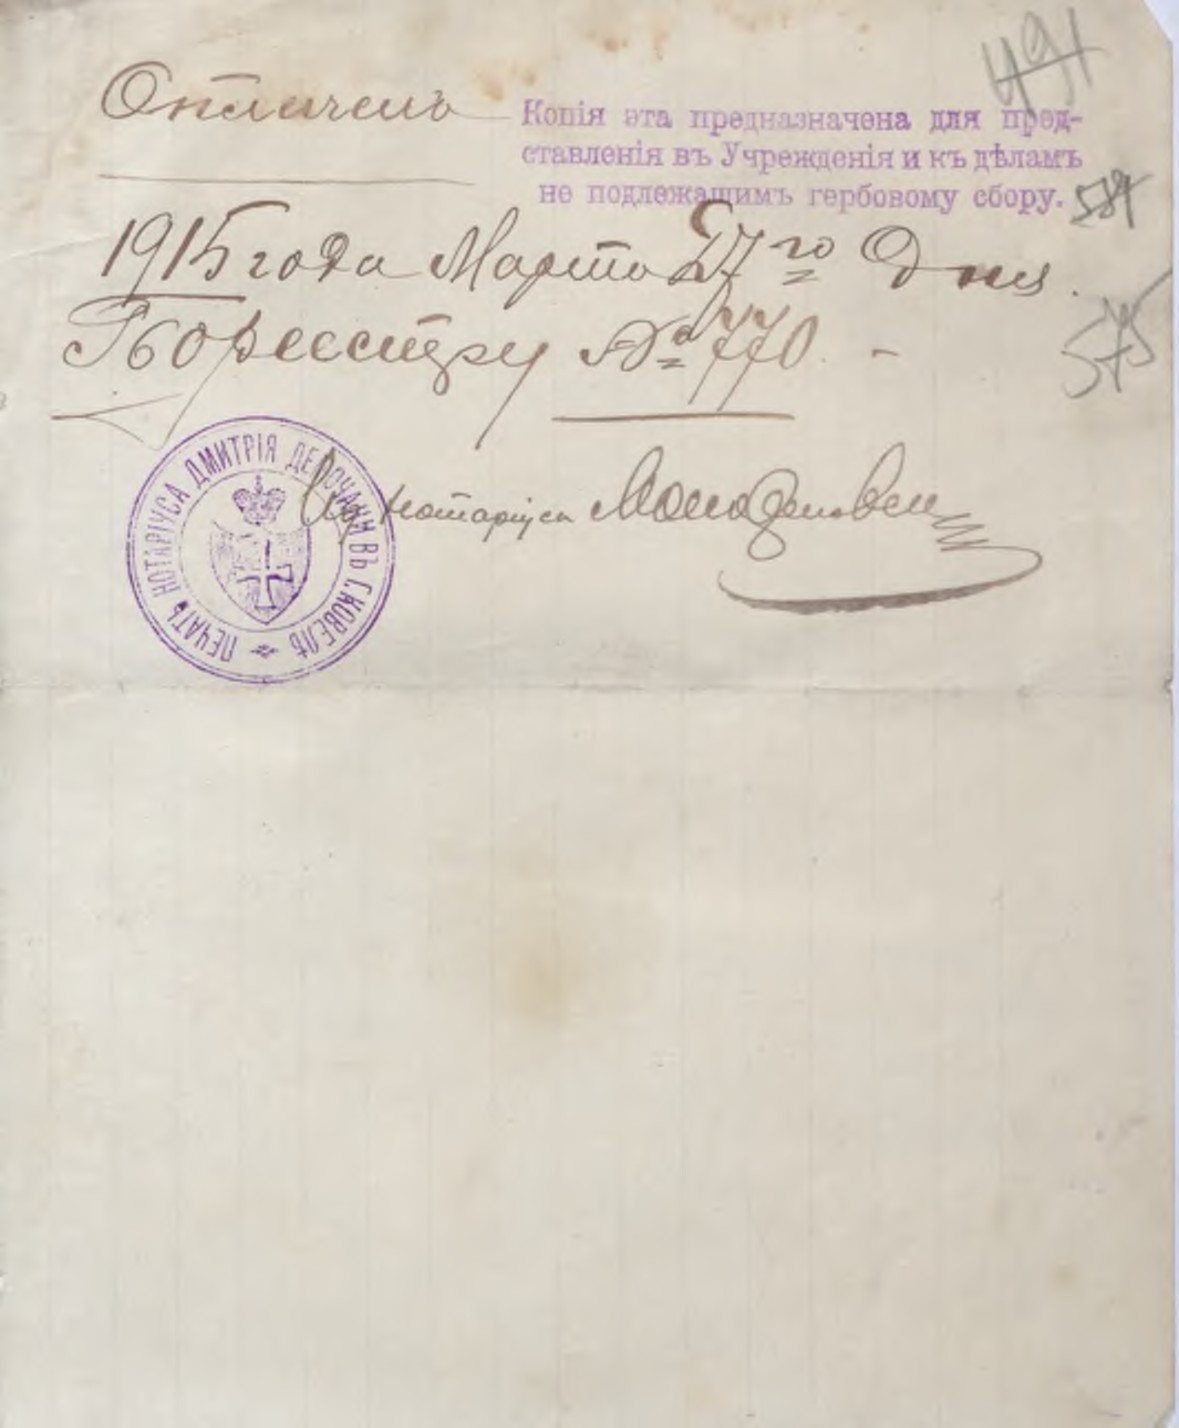 491
Копія эта предназначена для пред-
ставленія въ Учрежденія и къ дѣламъ
не подлежащимъ гербовому сбору.
1915 года Марта 27 го дня.
По реестру № 770. -
575
нотаріуса
ПЕЧАТЬ НОТАРІУСА ДМИТРІЯ ВЪ Г. КОВЕЛѢ